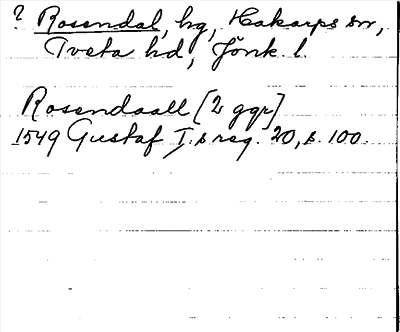 ? Rosendal, hg, Hakarps sn,
Tveta hd, Jönk. l.
Rosendaall [2 ggr]
1549 Gustaf I:s reg. 20, s. 100.